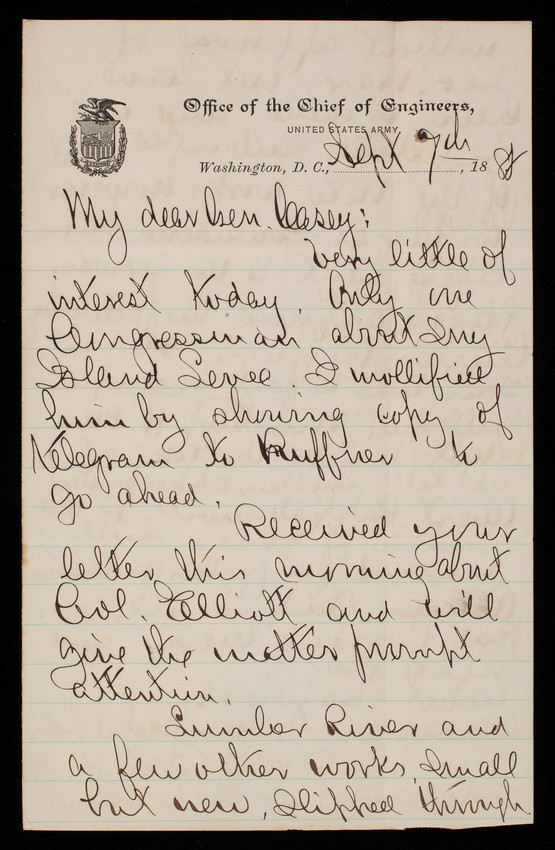 Office of the Chief of Engineers,
UNITED STATES ARMY,
Washington, D. C., Sept 7th, 188
My dear Gen. Casey:
Very little of
interest today. Only one
Congressman about Sny
Island Levee. I mollified
him by showing copy of
telegram to Ruffner to
go ahead.
Received your
letter this morning about
Col. Elliott and will
give the matter prompt
attention.
Lumber River and
a few other works, small
but new, slipped through